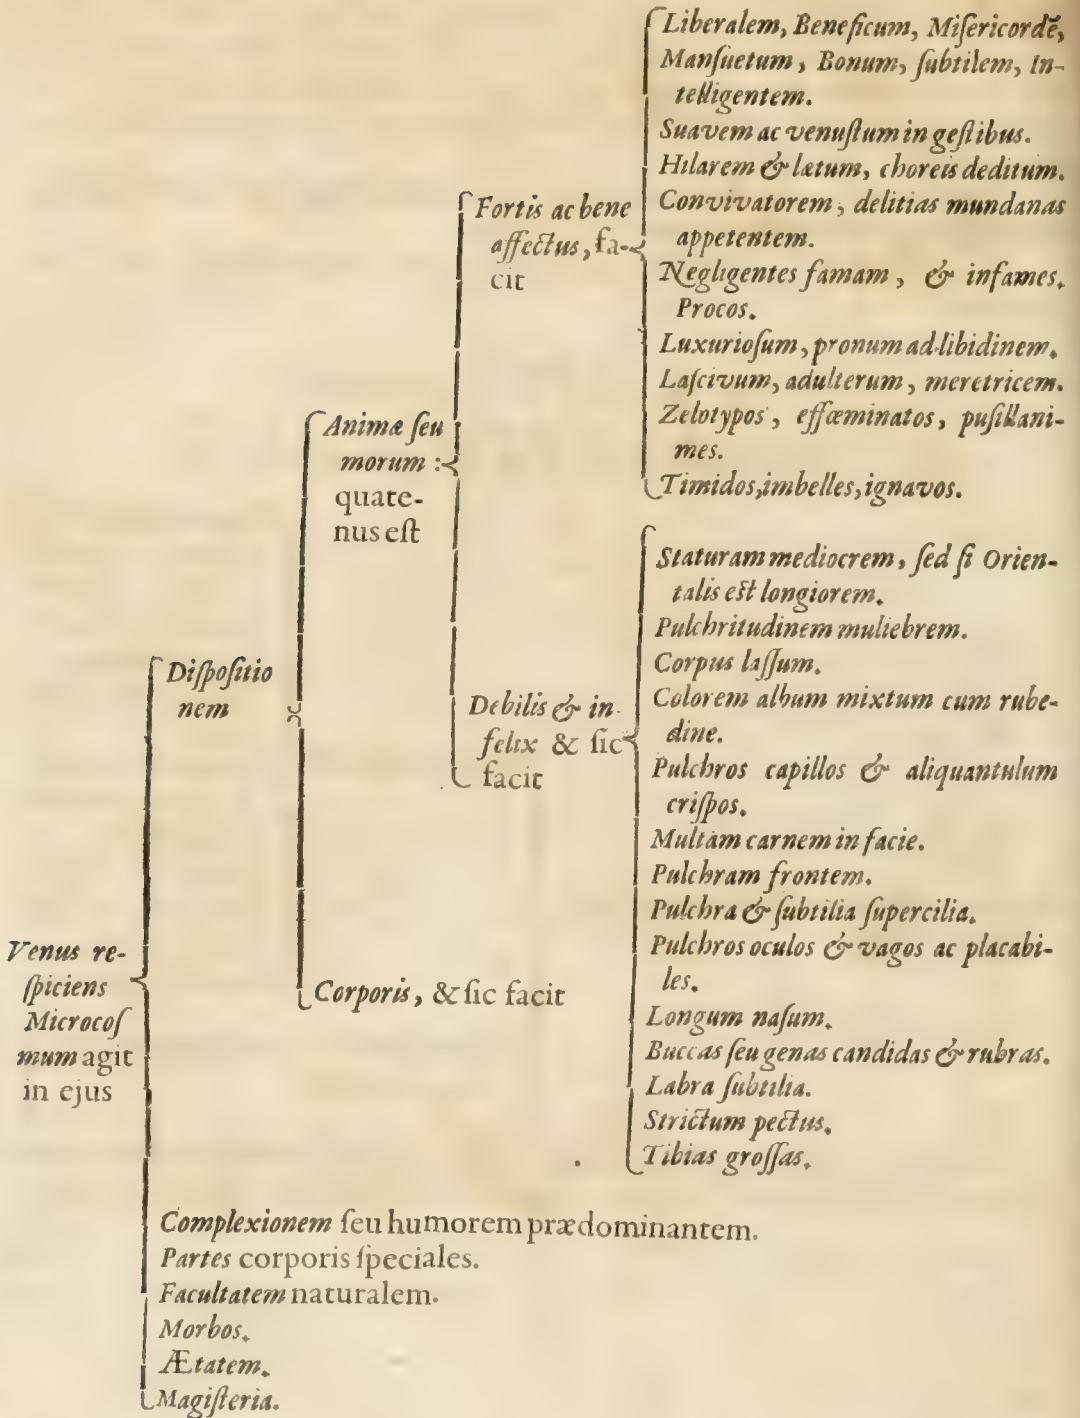 Venus re-
ſpiciens
Microcoſ
mum agit
in ejus
Diſpoſitio
nem
Animæ ſeu
morum :
quate-
nus eſt
Fortis ac bene
affectus, fa-
cit
Liberalem, Beneficum, Miſericordē,
Manſuetum, Bonum, ſubtilem, In-
telligentem.
Suavem ac venuſtum in geſtibus.
Hilarem & lætum, choreis deditum.
Convivatorem, delitias mundanas
appetentem.
Negligentes famam, & infames.
Procos.
Luxurioſum, pronum ad libidinem.
Laſcivum, adulterum, meretricem.
Zelotypos, effœminatos, puſillani-
mes.
Timidos, imbelles, ignavos.
Debilis & in-
felix & ſic
facit
Corporis, & ſic facit
Staturam mediocrem, ſed ſi Orien-
talis eſt longiorem.
Pulchritudinem muliebrem.
Corpus laſſum.
Colorem album mixtum cum rube-
dine.
Pulchros capillos & aliquantulum
criſpos.
Multam carnem in facie.
Pulchram frontem.
Pulchra & ſubtilia ſupercilia.
Pulchros oculos & vagos ac placabi-
les.
Longum naſum.
Buccas ſeu genas candidas & rubras.
Labra ſubtilia.
Strictum pectus.
Tibias groſſas.
Complexionem ſeu humorem prædominantem.
Partes corporis ſpeciales.
Facultatem naturalem.
Morbos.
Ætatem.
Magiſteria.